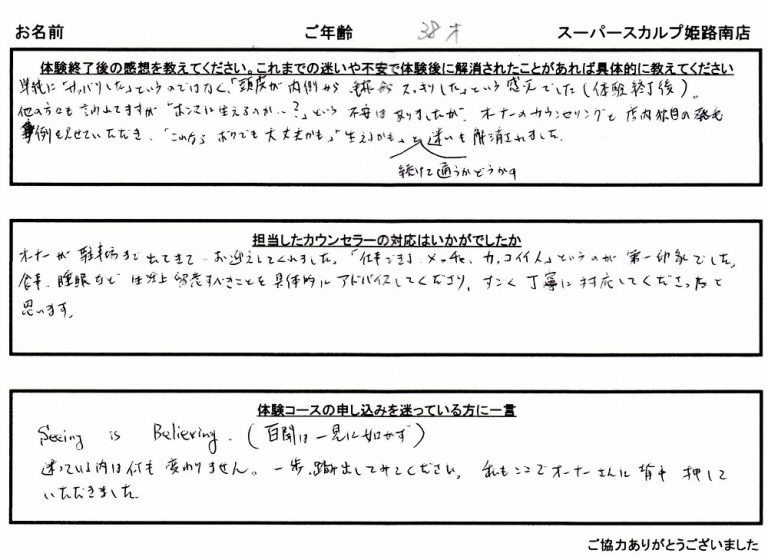 お名前 ご年齢 38才 スーパースカルプ姫路南店
体験終了後の感想を教えてください。これまでの迷いや不安で体験後に解消されたことがあれば具体的に教えてください
単純に"サッパリした"というのではなく、「頭皮が内側から スッキリした」という感覚でした(体験終了後)。
他の方々も言われてますが"ホンマに生えるのか…?"という不安はありましたが、オーナーのカウンセリングと店内独自の発毛
事例を見せていただき、「これならボクでも大丈夫かも」「生えるかも」と迷いも解消されました。
続けて通うかどうかの
担当したカウンセラーの対応はいかがでしたか
オーナーが駐車場まで出てきてお迎えしてくれました。「仕事できる、メッチャ、カッコイイ人」というのが第一印象でした。
食事、睡眠など生活上留意すべきことを具体的にアドバイスしてくださり、すごく丁寧に対応してくださったと
思います。
体験コースの申し込みを迷っている方に一言
Seeing is Believing.(百聞は一見に如かず)
迷っている内は何も変わりません。一歩踏み出してみてください。私もここでオーナーさんに背中押して
いただきました。
ご協力ありがとうございました